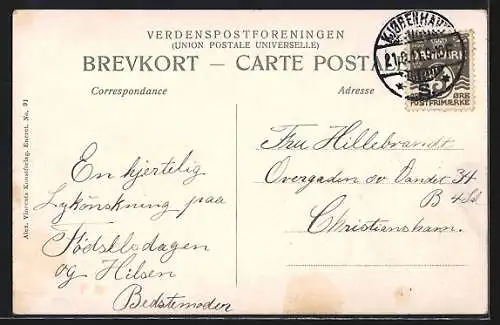 VERDENSPOSTFORENINGEN
(UNION POSTALE UNIVERSELLE)
BREVKORT — CARTE POSTA
Correspondance
Adresse
KJØBENHAVN
ØRE
POSTFRIMÆRKE
Alex. Vincents Kunstforlag. Eneret. No. 91
En hjertelig
Lykönskning paa
Födselsdagen
og Hilsen
Bedstemoder
Fru Hillebrandt
Overgaden ov Vandet 34
B 4 Sal
Christianshavn.